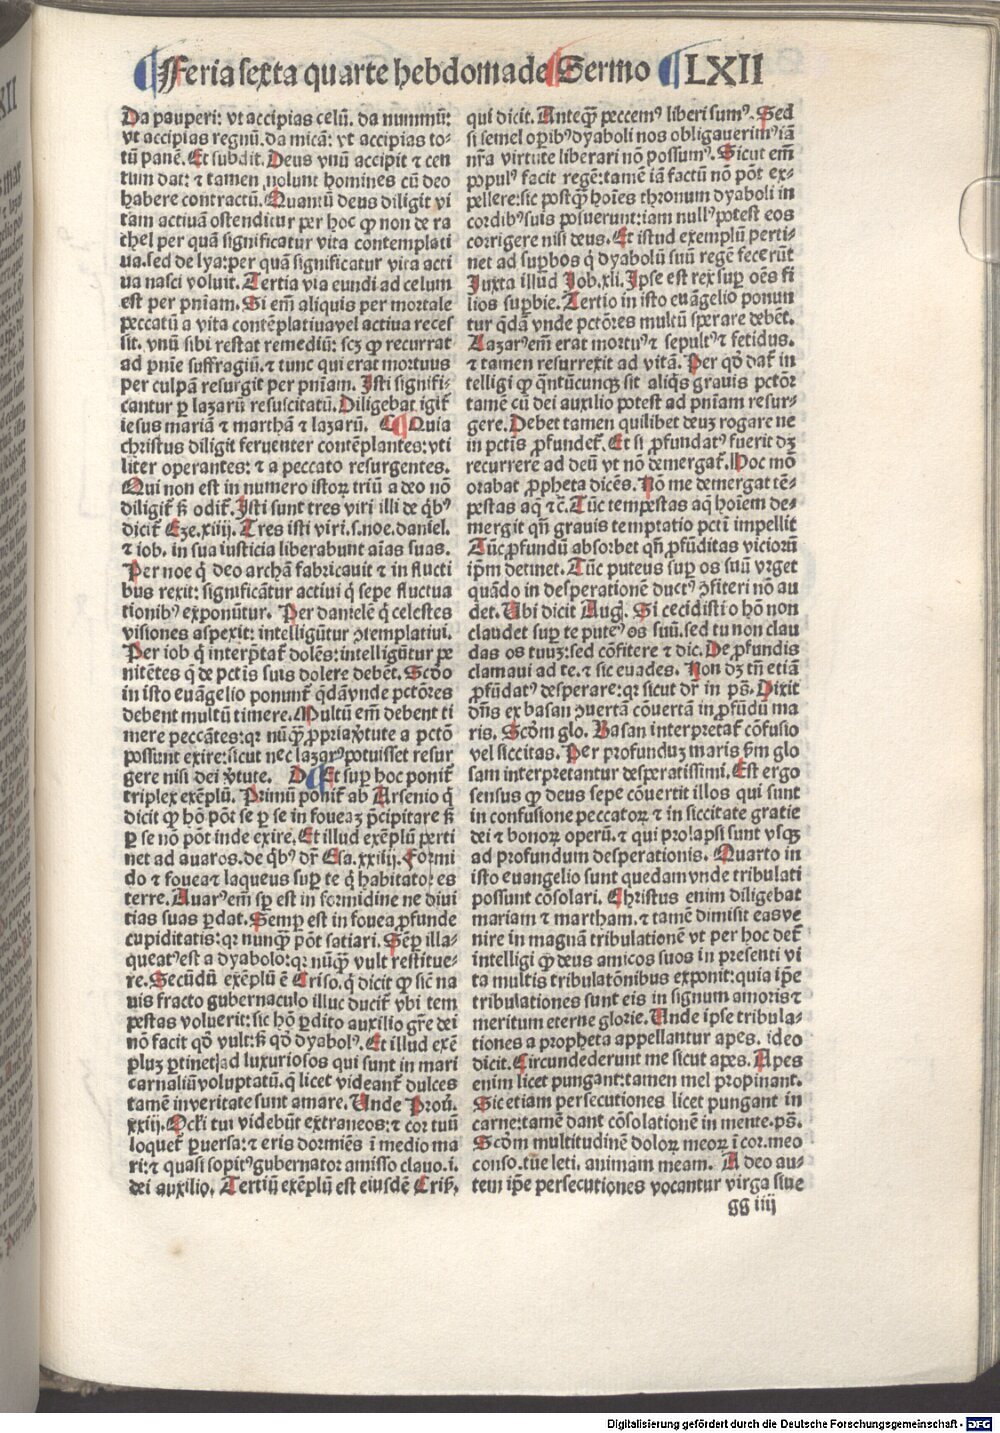 Feria sexta quarte hebdomade Sermo LXII
Da pauperi: vt accipias celū. da nummū:
vt accipias regnū. da micā: vt accipias to-
tū panē. Et subdit. Deus vnū accipit ⁊ cen
tum dat: ⁊ tamen nolunt homines cū deo
habere contractū. Quantū deus diligit vi
tam actiuā ostenditur per hoc ꝙ non de ra
chel per quā significatur vita contemplati
ua. sed de lya: per quā significatur vita acti
ua nasci voluit. Tertia via eundi ad celum
est per pniam. Si em̄ aliquis per mortale
peccatū a vita contēplatiua vel actiua reces
sit. vnū sibi restat remediū: scꝫ ꝙ recurrat
ad pnie suffragiū. ⁊ tunc qui erat mortuus
per culpā resurgit per pniam. Isti signifi-
cantur ꝑ lazarū resuscitatū. Diligebat igit̄
iesus mariā ⁊ marthā ⁊ lazarū. C Quia
christus diligit feruenter contēplantes: vti
liter operantes: ⁊ a peccato resurgentes.
Qui non est in numero istoꝝ triū a deo nō
diligit̄ sꝫ odit̄. Isti sunt tres viri illi de qͥbꝰ
dicit̄ Eze. xiiij. Tres isti viri. s. noe. daniel.
⁊ iob. in sua iusticia liberabunt aīas suas.
Per noe q̄ deo archā fabricauit ⁊ in flucti
bus rexit: significātur actiui q̄ sepe fluctua
tionibꝰ exponūtur. Per danielē q̄ celestes
visiones aspexit: intelligūtur ꝯtemplatiui.
Per iob q̄ interp̄tat̄ dolēs: intelligūtur pe
nitētes q̄ de pctis suis dolere debēt. Scd̄o
in isto euāgelio ponunt̄ q̄dā vnde pctōres
debent multū timere. Multū em̄ debent ti
mere peccātes: qꝛ nūqꝫ ꝓpria v̄tute a pctō
possunt exire: sicut nec lazarꝰ potuisset resur
gere nisi dei v̄tute. D Et sup hoc ponit̄
triplex exēplū. Primū ponit̄ ab Arsenio q̄
dicit ꝙ hō pōt se ꝑ se in foueaꝫ p̄cipitare sꝫ
ꝑ se nō pōt inde exire. Et illud exēplū perti
net ad auaros. de qͥbꝰ dr̄ Esa. xxiiij. Formi
do ⁊ fouea ⁊ laqueus sup te q̄ habitator es
terre. Auarꝰ em̄ sp̄ est in formidine ne diui
tias suas ꝑdat. Semp est in fouea ꝓfunde
cupiditatis: qꝛ nunqꝫ pōt satiari. Semp illa-
queatꝰ est a dyabolo: qꝛ nūqꝫ vult restitue-
re. Secūdū exēplū ē Criso. q̄ dicit ꝙ sic̄ na
uis fracto gubernaculo illuc ducit̄ vbi tem
pestas voluerit: sic hō ꝑdito auxilio gr̄e dei
nō facit qd̄ vult: sꝫ qd̄ dyabolꝰ. Et illud exē
pluꝫ ꝑtinet ad luxuriosos qui sunt in mari
carnaliū voluptatū. q̄ licet videant̄ dulces
tamē in veritate sunt amare. Unde Prou̅.
xxiij. Ocl̄i tui videbūt extraneos: ⁊ cor tuū
loquet̄ ꝑuersa: ⁊ eris dormiēs ī medio ma
ri: ⁊ quasi sopitꝰ gubernator amisso clauo. i.
dei auxilio. Tertiū exēplū est eiusdē Cris̄.
qui dicit. Anteqꝫ peccemꝰ liberi sumꝰ. Sed
si semel oꝑibꝰ dyaboli nos obligauerimꝰ iā
nr̄a virtute liberari nō possumꝰ. Sicut em̄
ppulꝰ facit regē: tamē iā factū nō pōt ex-
pellere: sic postqꝫ hoīes thronum dyaboli in
cordibꝰ suis posuerunt: iam nullꝰ potest eos
corrigere nisi deus. Et istud exemplū perti-
net ad supbos q̄ dyabolū suū regē fecerūt
Juxta illud Job. xli. Ipse est rex sup oēs fi
lios supbie. Tertio in isto euāgelio ponun
tur q̄dā vnde pctōres multū sperare debēt.
Lazarꝰ em̄ erat mortuꝰ ⁊ sepultꝰ ⁊ fetidus.
⁊ tamen resurrexit ad vitā. Per qd̄ dat̄ in
telligi ꝙ q̄ntūcunqꝫ sit aliq̄s grauis pctōr
tamē cū dei auxilio potest ad pniam resur-
gere. Debet tamen quilibet deuꝫ rogare ne
in pctis ꝓfundet̄. Et si ꝓfundatꝰ fuerit dꝫ
recurrere ad deū vt nō demergat̄. Hoc mō
orabat ꝓpheta dicēs. Nō me demergat tē-
pestas aq̄ ⁊c̄. Tūc tempestas aq̄ hoīem de-
mergit qn̄ grauis temptatio pcti impellit
Tūc ꝓfundū absorbet qn̄ ꝓfūditas vicioꝝ
ip̄m detinet. Tūc puteus sup os suū vrget
quādo in desperationē ductꝰ ꝯfiteri nō au
det. Ubi dicit Aug. Si cecidisti o hō non
claudet sup te puteꝰ os suū. sed tu non clau
das os tuuꝫ: sed cōfitere ⁊ dic. De ꝓfundis
clamaui ad te. ⁊ sic euades. Non dꝫ tn̄ etiā
ꝓfūdatꝰ desperare: qꝛ sicut dr̄ in ps̄. Dixit
dn̄s ex basan ꝯuertā cōuertā in ꝓfūdū ma
ris. Scd̄m glo. Basan interpretat̄ cōfusio
vel siccitas. Per profunduꝫ maris sm̄ glo
sam interpretantur desperatissimi. Est ergo
sensus ꝙ deus sepe cōuertit illos qui sunt
in confusione peccatoꝝ ⁊ in siccitate gratie
dei ⁊ bonoꝝ operū. ⁊ qui prolapsi sunt vsqꝫ
ad profundum desperationis. Quarto in
isto euangelio sunt quedam vnde tribulati
possunt cōsolari. Christus enim diligebat
mariam ⁊ martham. ⁊ tamē dimisit eas ve
nire in magnā tribulationē vt per hoc det̄
intelligi ꝙ deus amicos suos in presenti vi
ta multis tribulatōnibus exponit: quia ip̄e
tribulationes sunt eis in signum amoris ⁊
meritum eterne glorie. Unde ipse tribula-
tiones a propheta appellantur apes. ideo
dicit. Circundederunt me sicut apes. Apes
enim licet pungant: tamen mel propinant.
Sic etiam persecutiones licet pungant in
carne: tamē dant cōsolationē in mente. ps̄.
Scd̄m multitudinē doloꝝ meoꝝ ī cor. meo
conso. tūe leti. animam meam. A deo au-
tem ip̄e persecutiones vocantur virga siue
gg iiij
Digitalisierung gefördert durch die Deutsche Forschungsgemeinschaft - DFG